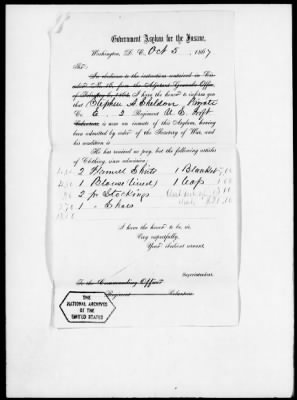 Government Asylum for the Insane,
Washington, D. C. Oct 5, 1867
Sir:
In obedience to the instruction contained in
from the Adjutant General's Office
I have the honor to inform you
that Stephen A. Sheldon Private
Co. E. 2 Regiment
Volunteers is now an inmate of this Asylum, having
been admitted by order of the Secretary of War, and
his condition is
He has received no pay, but the following articles
of Clothing, since admission:
2 Flannel Shirts 1 Blanket
1 Blouse lined 1 Cap
2 pr Stockings
1 " Shoes
I have the honor to be, sir,
Very respectfully,
Your obedient servant,
Superintendent.
To the Commanding Officer
Regiment Volunteers.
THE
NATIONAL ARCHIVES
OF THE
UNITED STATES